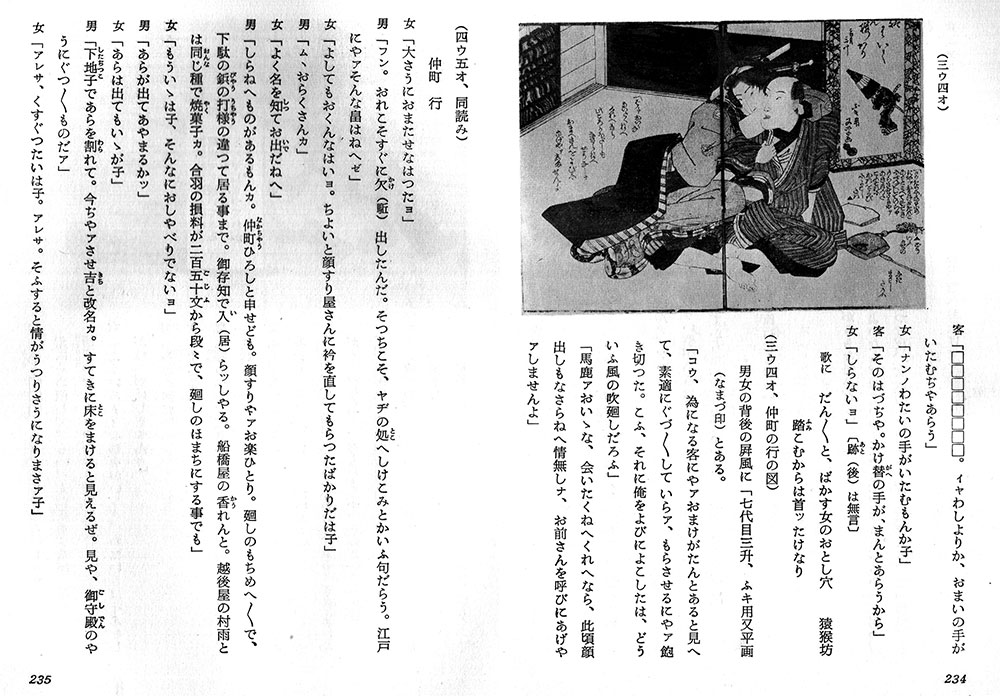 (三ウ四オ)
客「□□□□□□□□。イャわしよりか、おまいの手が
いたむぢやあらう」
女「ナンノわたいの手がいたむもんか子」
客「そのはづぢや。かけ替の手が、まんとあらうから」
女「しらないョ」〔跡(後)は無言〕
歌に だん〳〵と、ばかす女のおとし穴 猿猴坊
踏こむからは首ッたけなり
(三ウ四オ、仲町の行の図)
男女の背後の屏風に「七代目三升、ふキ用又平画
(なまづ印)とある。
「コウ、為になる客にやァおまけがたんとあると見へ
て、素適にぐづ〳〵していらァ、もらさせるにやァ飽
き切つた。こふ、それに俺をよびによこしたは、どう
いふ風の吹廻しだろふ」
「馬鹿ァおいゝな、会いたくねへくれへなら、此頃顔
出しもなさらねへ情無しナ、お前さんを呼びにあげや
アしませんよ」
234
(四ウ五オ、同読み)
仲町 行
女「大さうにおまたせなはつたョ」
男「フン。おれこそすぐに欠(駈)出したんだ。そつちこそ、ヤヂの処へしけこみとかいふ句だらう。江戸
にやァそんな畠はねへぜ」
女「よしてもおくんなはいョ。ちよいと顔すり屋さんに衿を直してもらつたばかりだは子」
男「ムヽおらくさんカ」
女「よく名を知てお出だねへ」
男「しらねへものがあるもんカ。仲町ひろしと申せども。顔すりやァお楽ひとり。廻しのもちめへ〳〵で、
下駄の鋲の打様の違つて居る事まで。御存知で入(居)らッしやる。船橋屋の香れんと。越後屋の村雨と
は同じ種で焼菓子カ。合羽の損料が二百五十文から段〻で、廻しのほまちにする事でも」
女「もういゝは子、そんなにおしやべりでないョ」
男「あらが出てあやまるかッ」
女「あらは出てもいゝが子」
男「下地子であらを割れて。今ぢやァさせ吉と改名カ。すてきに床をまけると見えるぜ。見や、御守殿のや
うにぐつ〳〵ものだァ」
女「アレサ、くすぐつたいは子。アレサ。そふすると情がうつりさうになりまさァ子」
235